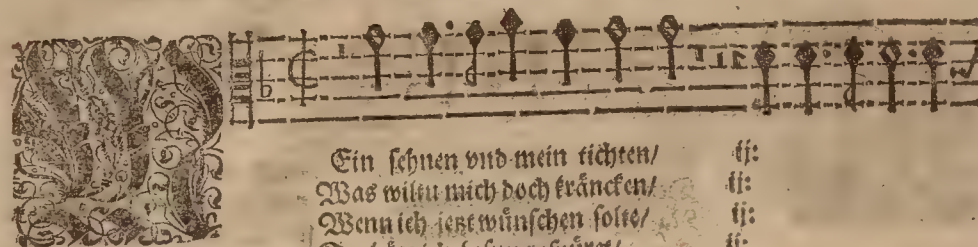 Ein sehnen vnd mein tichten/ ij:
Was wiltu mich doch kräncken/ ij:
Wenn ich jetzt wünschen solte/ ij:
ij: